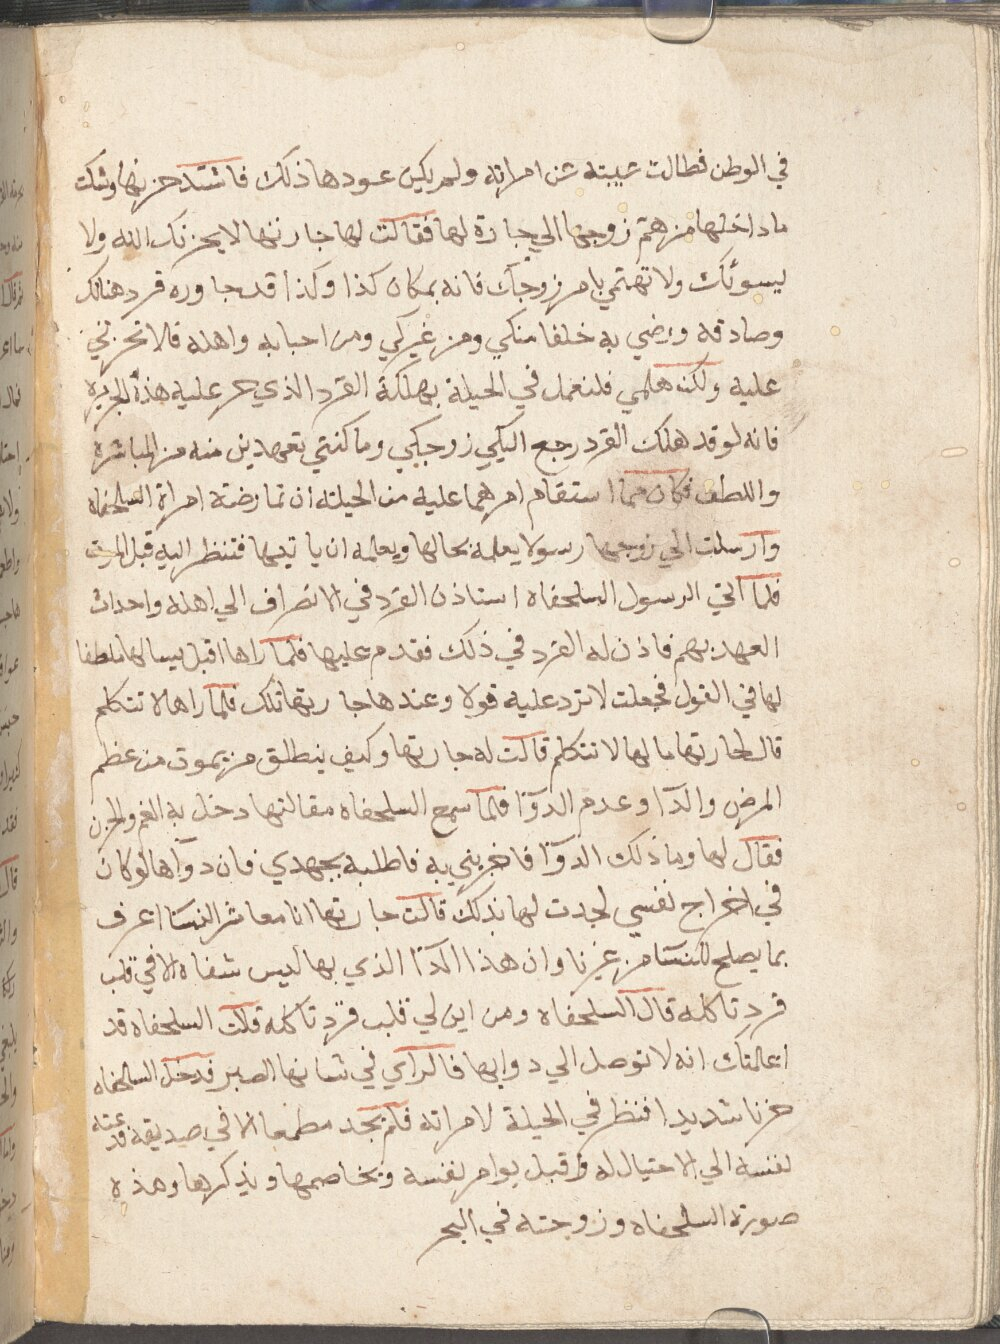 في الوطن فطالت غيبته عن امراته ولم يكن عودها ذلك فاشتد حزنها وشكت
ما داخلها من هم زوجها الي جارة لها فقالت لها جارتها لا يحزنك الله ولا
يسوئك ولا تهتمي بامر زوجك فانه بمكان كذا وكذا قد جاوره قرد هنالك
وصادقه ورضي به خلفا منكي ومن غيركي ومن احبابه واهله فلا تحزني
عليه ولكن هلمي فلنعمل في الحيلة بهلكة القرد الذي حر عليه هذه الجريره
فانه لو قد هلك القرد رجع اليكي زوجكي وما كنتي تعهدين منه من المباشرة
واللطف فكان مما استقام امرهما عليه من الحيلة ان تمارضة امراة السلحفاه
وارسلت الي زوجها رسولا يعلمه بحالها ويعلمه ان ياتيها فتنظر اليه قبل الموت
فلما اتي الرسول السلحفاه استاذن القرد في الانصراف الي اهله واحداث
العهد بهم فاذن له القرد في ذلك فقدم عليها فلما راها اقبل يسالها ملطفا
لها في القول فجعلت لا ترد عليه قولا وعندها جارتها تلك فلما راها لا تتكلم
قال لجارتها ما لها لا تتكلم قالت له جارتها وكيف ينطلق من يموت من عظم
المرض والدآ وعدم الدوآ فلما سمع السلحفاه مقالتها دخل به الغم والحزن
فقال لها وما ذلك الدوآ فاخبريني به فاطلبه بجهدي فان دوآها لو كان
في اخراج نفسي لجدت لها بذلك قالت جارتها انا معاشر النسا اعرف
بما يصلح للنسا من غيرنا وان هذا الدآ الذي بها ليس شفاه الا في قلب
قرد تاكله قال السلحفاه ومن اين لي قلب قرد تاكله قلت السلحفاه قد
اعلمتك انه لا توصل الي دوايها فالراي في شانها الصبر فدخل السلحفاه
حزنا شديدا فنظر في الحيلة لامراته فلم يجد مطمعا الا في صديقه فدعته
نفسه الي الاحتيال له واقبل يوامر نفسه ويخاصمها ويذكرها وهذه
صورة السلحفاه وزوجته في البحر